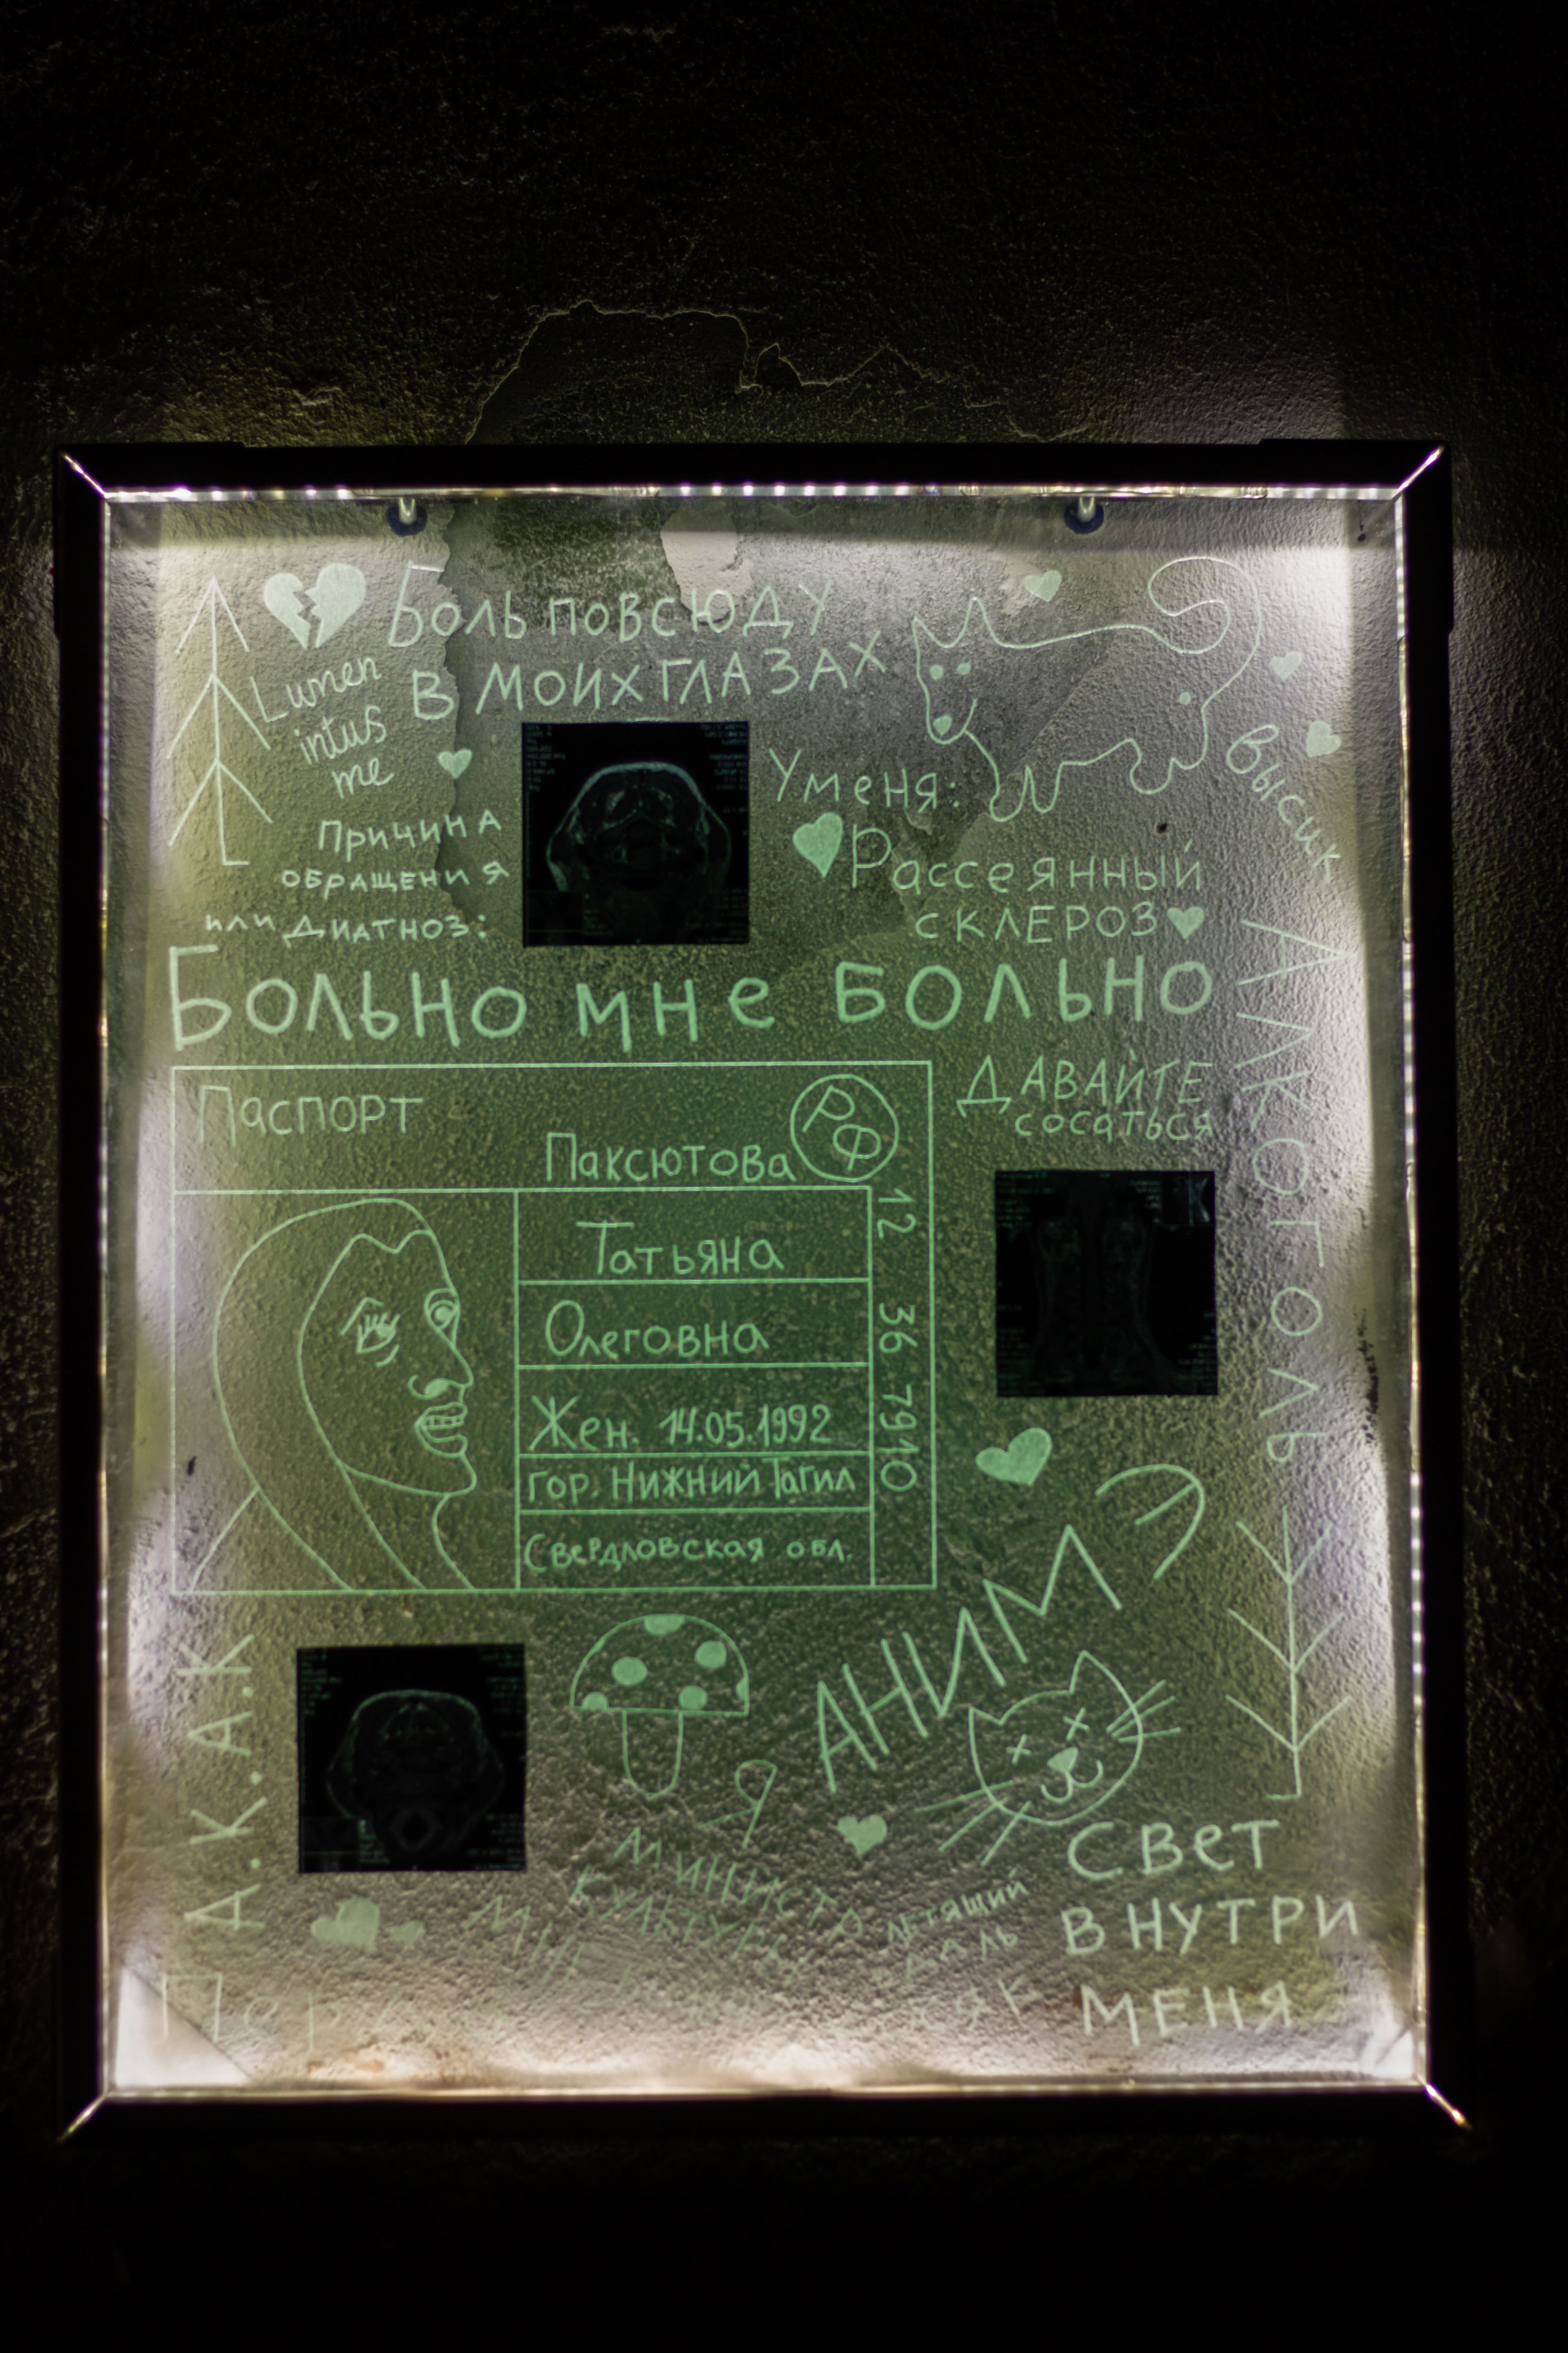 Боль повсюду
в моих глазах
Lumen
intus
me
Причина
обращения
или диагноз:
У меня:
Рассеянный
склероз
Высик
Больно мне больно
Давайте
сосаться
Алкоголь
Паспорт
РФ
Паксютова
Татьяна
Олеговна
Жен. 14.05.1992
гор. Нижний Тагил
Свердловская обл.
12 36 7910
АНИМЭ
А.К.А.К
Я
министр
культуры
летящий
вдаль
Свет
внутри
меня